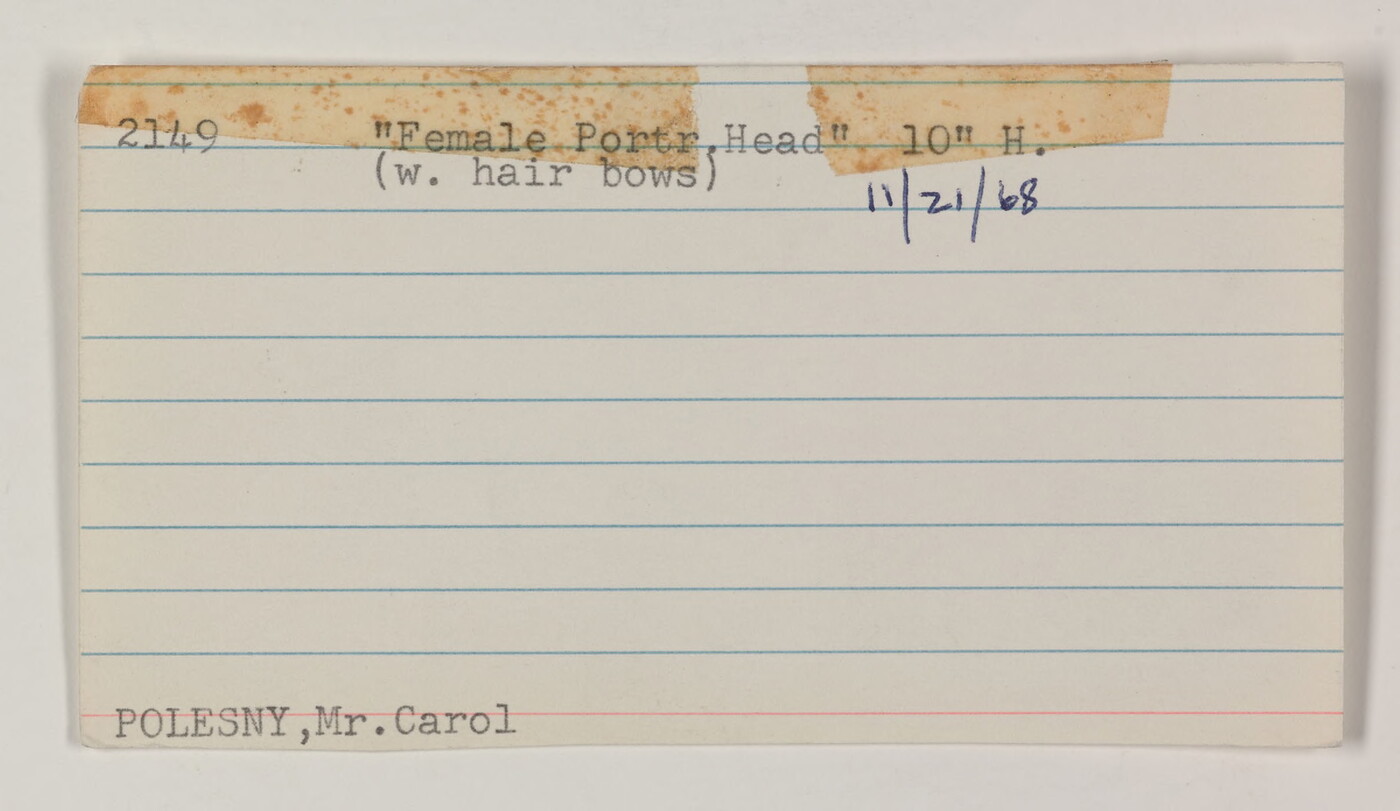 2149 "Female Portr.Head" 10" H.
(w. hair bows)
11/21/68
POLESNY,Mr.Carol